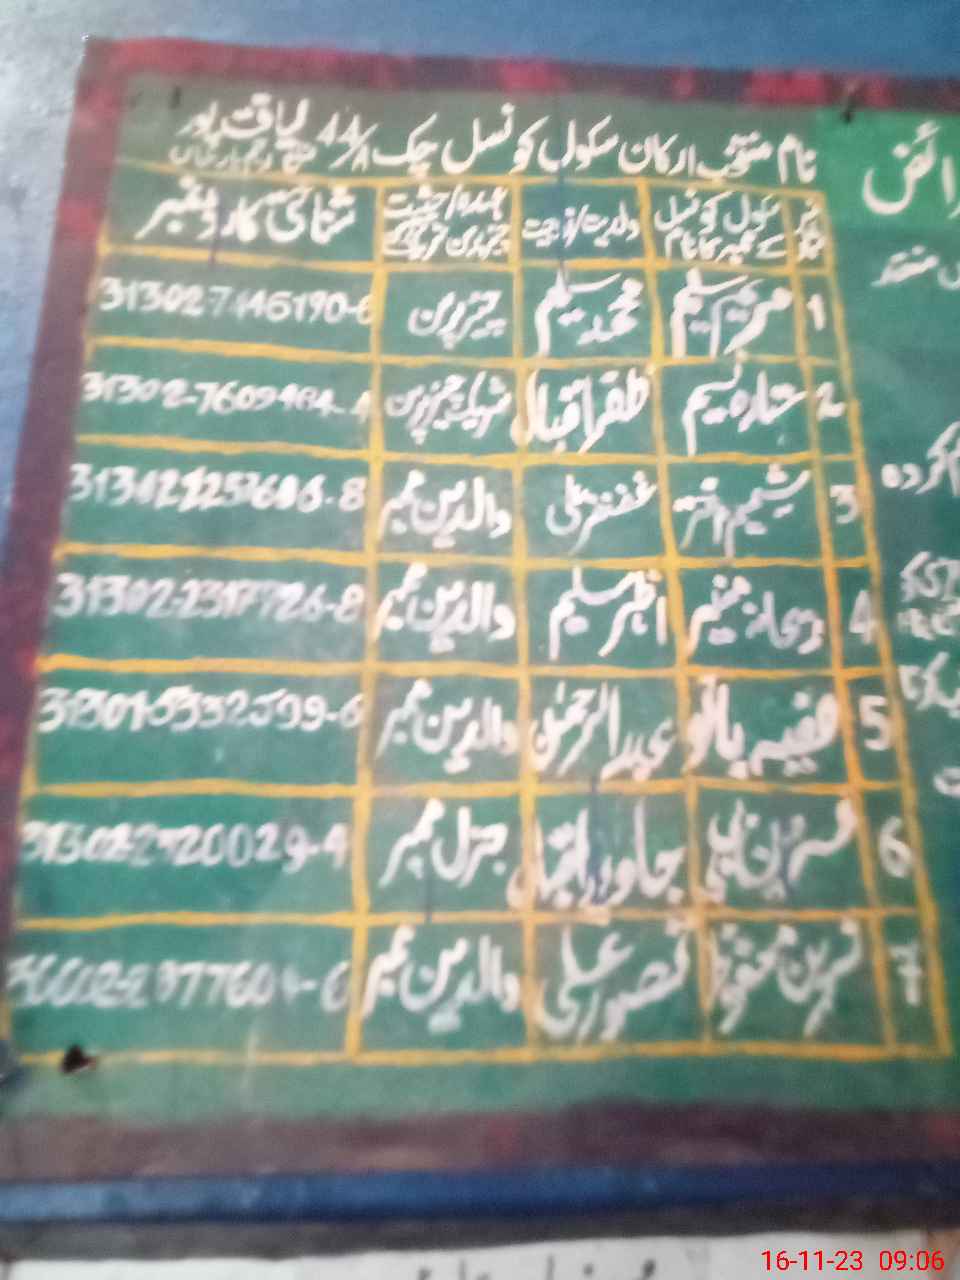 نام منتخب ارکان سکول کونسل چک 44/A لیاقت پور
ضلع رحیم یار خاں
نمبر شمار سکول کونسل کے ممبر کا نام ولدیت/زوجیت عہدہ/حیثیت شناختی کارڈ نمبر
1 مریم سلیم محمد سلیم چیئرپرسن 31302-7446190-6
2 ستارہ نسیم ظفر اقبال شریک چیئرپرسن 31302-7609484-4
3 شمیم اختر غضنفر علی والدین ممبر
4 ریحانہ منیر اظہر سلیم والدین ممبر 31302-2317726-8
5 صفیہ بانو عبدالرحمٰن والدین ممبر 31301-5332599-6
6 نسرین بی بی جاوید اقبال جنرل ممبر
7 نسرین محفوظ تصور علی والدین ممبر
ائض
کردہ
16-11-23 09:06